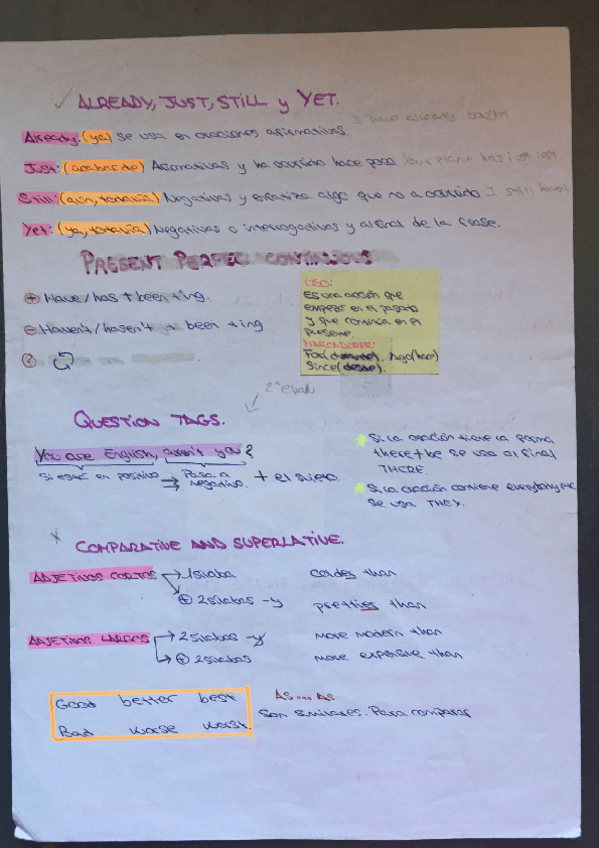 ALREADY, JUST, STILL y YET.
I have already bought
Already: (ya) se usa en oraciones afirmativas.
Just: (acabar de) Afirmativas y ha ocurrido hace poco Your plane has just
Still: (aún, todavía) Negativas y enfatiza algo que no a ocurrido I still haven't
Yet: (ya, todavía) Negativas o interrogativas y al final de la frase.
PRESENT PERFEC CONTINUOUS
+ Have/has + been + ing.
- Haven't/hasn't + been + ing
?
USO:
Es una acción que
empezó en el pasado
y que continúa en el
presente.
MARCADORES:
For (durante). Ago (hace)
Since (desde).
2ª eval
QUESTION TAGS.
You are English, aren't you?
Si está en positivo → Pasa a negativo. + el sujeto.
Si la oración tiene la forma
there + be se usa al final
THERE
Si la oración contiene everybody etc
se usa THEY.
COMPARATIVE AND SUPERLATIVE.
ADJETIVOS CORTOS → 1 sílaba colder than
+ 2 sílabas -y prettier than
ADJETIVOS LARGOS → 2 sílabas -y more modern than
→ + 2 sílabas more expensive than
Good better best
Bad worse worst
As...As
Son similares. Para comparar